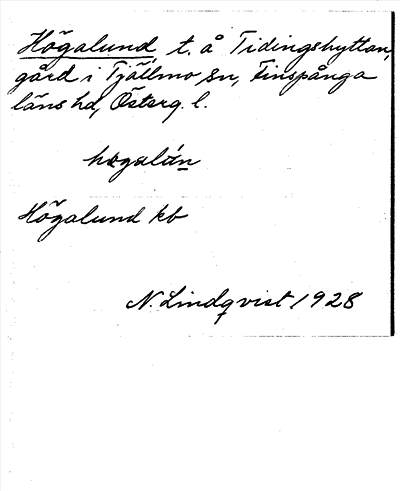 Högalund t. å Tidingshyttan,
gård i Tjällmo sn, Finspånga
läns hd, Österg. l.
högalún
Högalund kb
N. Lindqvist 1928